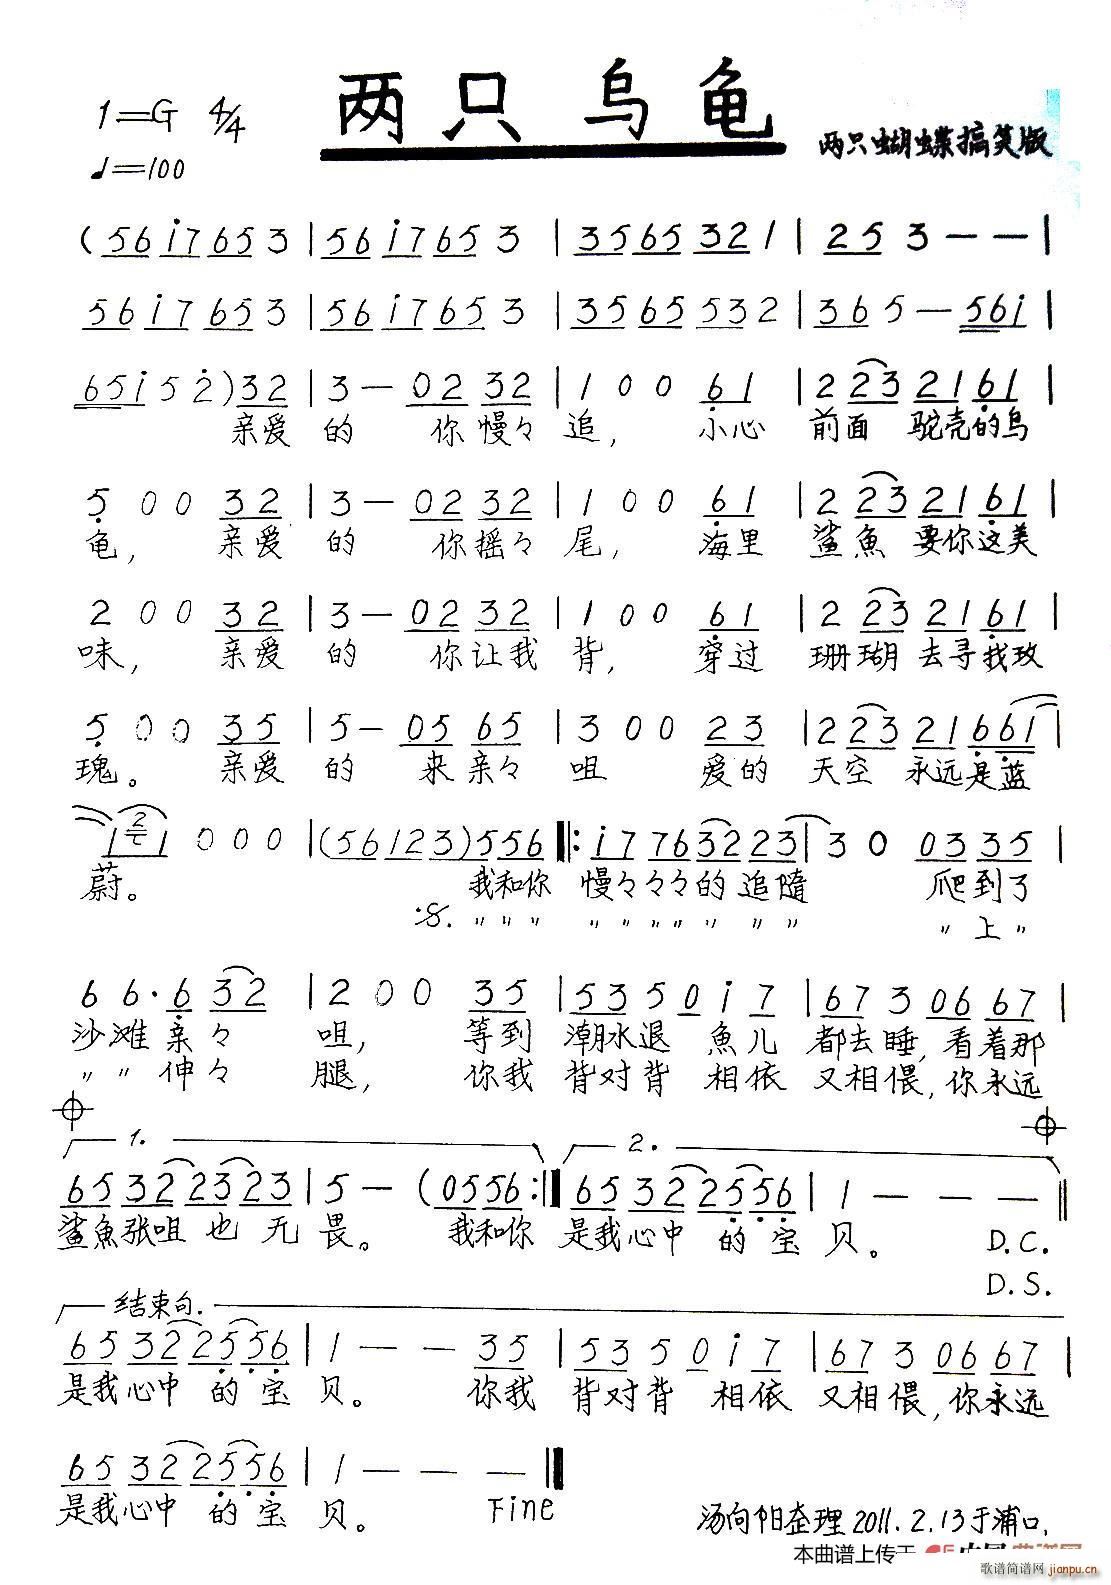 两只乌龟
1=G 4/4
♩=100
两只蝴蝶搞笑版
(56 i7 653 | 56 i7 65 3 | 35 65 32 1 | 25 3 — — |
56 i7 653 | 56 i7 65 3 | 35 65 532 | 36 5 — 56i |
65i 5 2) 32 | 3 — 02 32 | 1 0 0 61 | 2 23 21 61 |
亲爱 的 你慢々 追, 小心 前面 驼壳的乌
5 0 0 32 | 3 — 02 32 | 1 0 0 61 | 2 23 21 61 |
龟, 亲爱 的 你摇々 尾, 海里 鲨魚 要你这美
2 0 0 32 | 3 — 02 32 | 1 0 0 61 | 2 23 21 61 |
味, 亲爱 的 你让我 背, 穿过 珊瑚 去寻找玫
5 0 0 35 | 5 — 05 65 | 3 0 0 23 | 2 23 21 661 |
瑰。 亲爱 的 来亲々 咀 爱的 天空 永远是蓝
121 0 0 0 | (56123) 556 |: i7 76 32 23 | 3 0 03 35 |
蔚。 我和你 慢々々々的追隨 爬到了
𝄋. 〃 〃 〃 〃 〃 〃 〃 〃 〃 〃 〃 上 〃
6 6· 6 32 | 2 0 0 35 | 53 5 0 i 7 | 67 3 06 67 |
沙滩亲々 咀, 等到 潮水退 魚儿 都去睡,看着那
〃 〃 伸々 腿, 你我 背对背 相依 又相偎,你永远
1. 2.
65 32 23 23 | 5 — (05 56 :| 65 32 25 56 | 1 — — — ‖
鲨魚张咀也无 畏。 我和你 是我心中的宝 贝。 D.C.
D.S.
结束句.
65 32 25 56 | 1 — — 35 | 53 5 0 i 7 | 67 3 06 67 |
是我心中的宝 贝。 你我 背对背 相依 又相偎,你永远
65 32 25 56 | 1 — — — ‖
是我心中的宝 贝。 Fine
汤向阳歪理 2011.2.13于浦口,
本曲谱上传于
歌谱简谱网 jianpu.cn